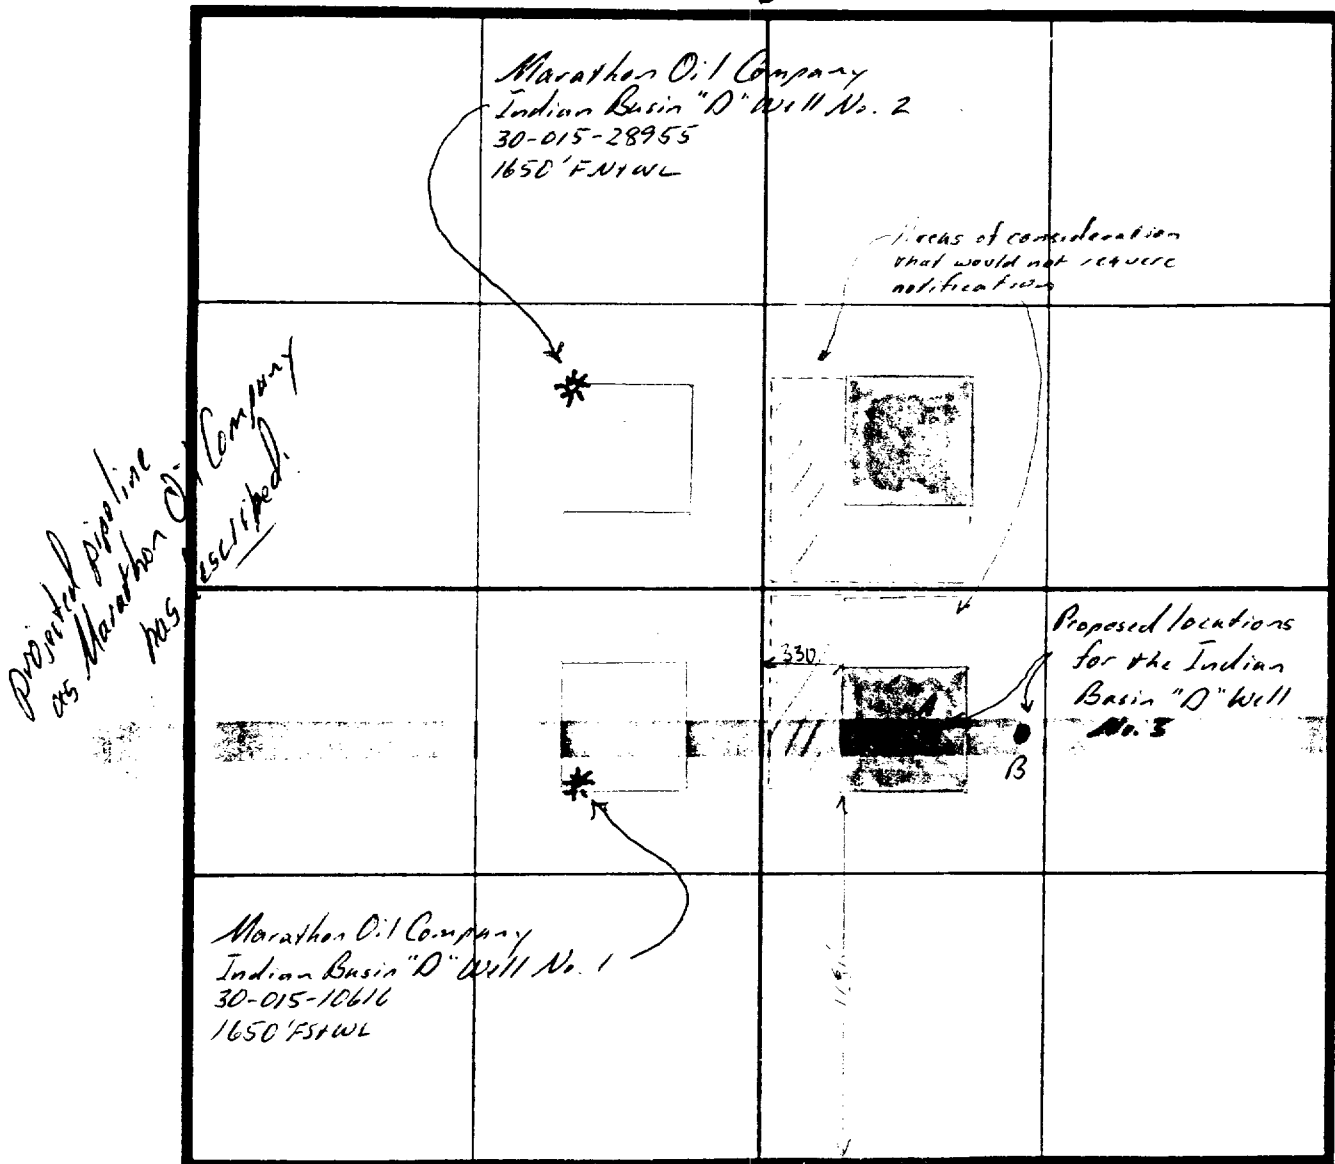 Marathon Oil Company
Indian Basin "D" Well No. 2
30-015-28955
1650' FN+WL
Areas of consideration
that would not require
notification
projected pipeline
as Marathon Oil Company
has described.
330'
Proposed locations
for the Indian
Basin "D" Well
No. 3
A
B
Marathon Oil Company
Indian Basin "D" Well No. 1
30-015-10616
1650' FS+WL